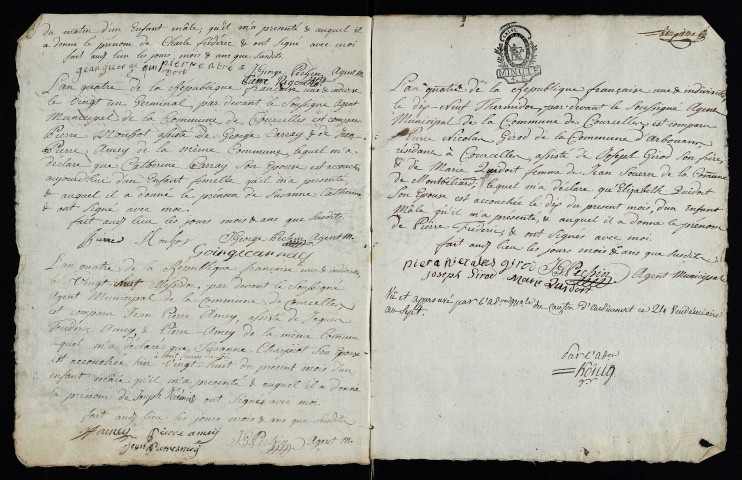 du matin d'un Enfant mâle, qu'il m'a presenté & auquel il
a donné le prenom de Charle Fréderic & ont signé avec moi
fait aux lieu les jours mois & ans que susdits.
George Pechin Agent M.
L'an quatre de la République française une & indivisible
le vingt un Germinal, par devant le soussigné Agent
Municipal de la Commune de Courcelles est comparu
Pierre Moussot assisté de George Carray & de Jean
Pierre Amey de la même Commune, lequel m'a
déclaré que Catherine Carray son épouse est accouchée
aujourdhui d'un Enfant femelle qu'il m'a presenté
& auquel il a donné le prénom de Susanne Catherine
& ont signé avec moi.
fait aux lieu les jours mois & ans que susdits.
George Pechin Agent M.
L'an quatre de la République française une & indivisible
le vingt huit Messidor, par devant le soussigné
Agent Municipal de la Commune de Courcelles
est comparu Jean Pierre Amey, assisté de Jaques
Fréderic Amey & Pierre Amey de la même Comune
lequel m'a déclaré que Susanne Charpiot son Epouse
est accouchée hier vingt-huit du present mois d'un
enfant mâle qu'il m'a presenté & auquel il a donné
le prénom de Joseph & ont signés avec moi.
fait aux lieu les jours mois & ans que susdits
Pierre amey
Jean Pierre amey J G Pechin Agent M.
MINUTE
L'an quatre de la République française une & indivisible
le dix Neuf Thermidor, par devant le soussigné Agent
Municipal de la Commune de Courcelles est comparu
Pierre Nicolas Girod de la Commune d'Arbouans
résidant à Courcelles, assisté de Joseph Girod son frère,
& de Marie Quidort femme de Jean de la Comune
de Montbéliard, lequel m'a déclaré que Elizabeth Quidort
son Epouse est accouchée le dix du present mois, d'un Enfant
Mâle qu'il m'a presenté, & auquel il a donné le prenom
de Pierre Fréderic, & ont signés avec moi.
fait aux lieu les jours mois & ans que susdits
girod J G Pechin Agent Municipal
Joseph Girod Marie Quidort
Vû et approuvé par l'adon Mple du Canton d'audincourt ce 24 Vendémiaire
an Sept.
Par l'adon